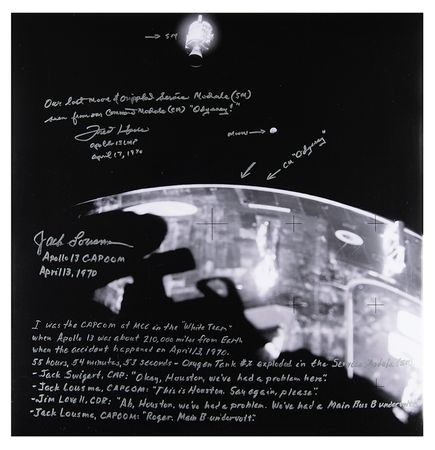 → SM
Our last Moon & Crippled Service Module (SM)
seen from our Command Module (CM) "Odyssey"
Fred Haise
Apollo 13 LMP
April 17, 1970
MOON →
CM "Odyssey"
Jack Lousma
Apollo 13 CAPCOM
April 13, 1970
I was the CAPCOM at MCC in the "White Team"
when Apollo 13 was about 210,000 miles from Earth
when the accident happened on April 13, 1970.
55 hours, 54 minutes, 53 seconds - Oxygen Tank #2 exploded in the Service Module (SM)
- Jack Swigert, CMP: "Okay, Houston, we've had a problem here".
- Jack Lousma, CAPCOM: "This is Houston. Say again, please".
- Jim Lovell, CDR: "Ah, Houston, we've had a problem. We've had a Main Bus B undervolt".
- Jack Lousma, CAPCOM: "Roger. Main B undervolt".